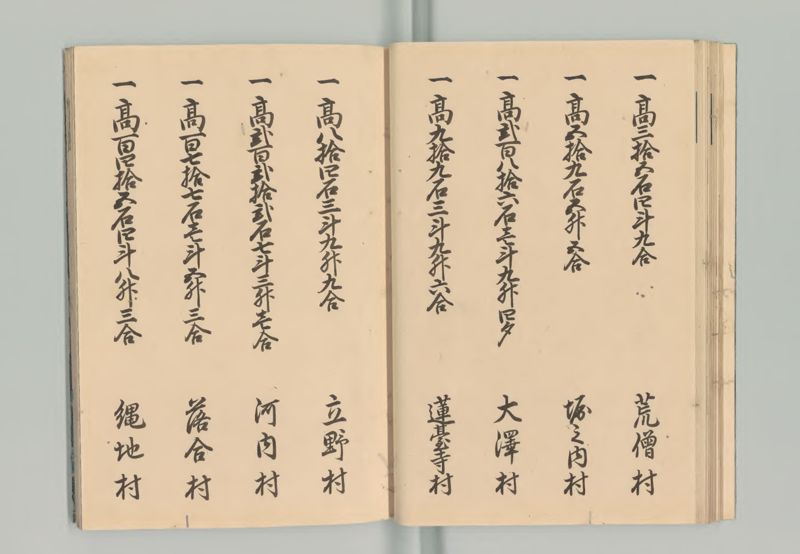 一高三拾五石四斗九合 荒僧村
一高五拾九石五升五合 堀之内村
一高弐百八拾六石壱斗九升四夕 大澤村
一高九拾九石三斗九升六合 蓮臺寺村
一高八拾四石三斗九升九合 立野村
一高弐百弐拾弐石七斗三升壱合 河内村
一高百七拾七石壱斗五升三合 落合村
一高百四拾五石四斗八升三合 縄地村